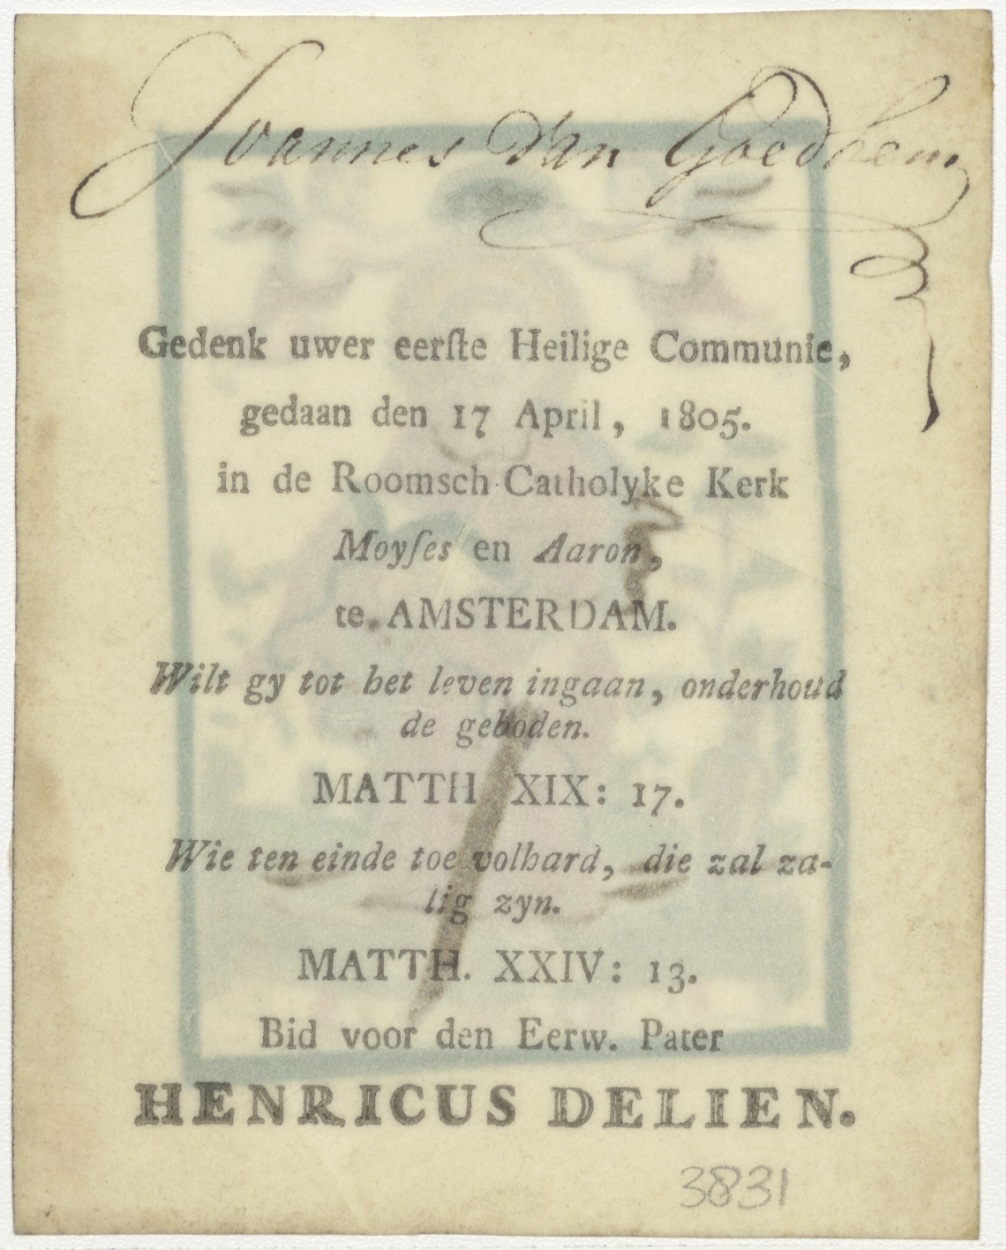 Joannes Van Goedhem
Gedenk uwer eerſte Heilige Communie,
gedaan den 17 April, 1805.
in de Roomsch Catholyke Kerk
Moyſes en Aaron,
te AMSTERDAM.
Wilt gy tot het leven ingaan, onderhoud
de geboden.
MATTH XIX: 17.
Wie ten einde toe volhard, die zal za-
lig zyn.
MATTH. XXIV: 13.
Bid voor den Eerw. Pater
HENRICUS DELIEN.
3831